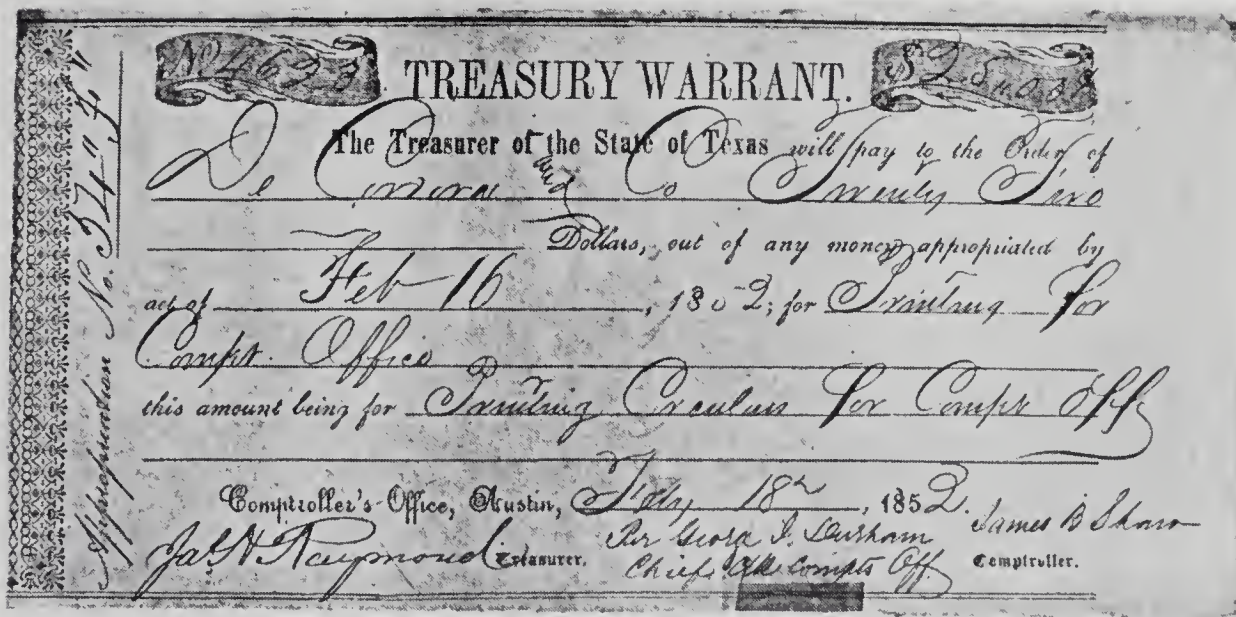 No 4623
TREASURY WARRANT.
$25.00
The Treasurer of the State of Texas will pay to the Order of
De Cordova and Co Twenty Five
Dollars, out of any money appropriated by
act of Feb 16, 1852; for Printing for
Compt. Office
this amount being for Printing Circulars for Compt Off
Comptroller's Office, Austin, July 18, 1852.
James B Shaw
Jas H Raymond Treasurer.
Per Geo
Chief Clk Compts Off.
Comptroller.
Appropriation No.